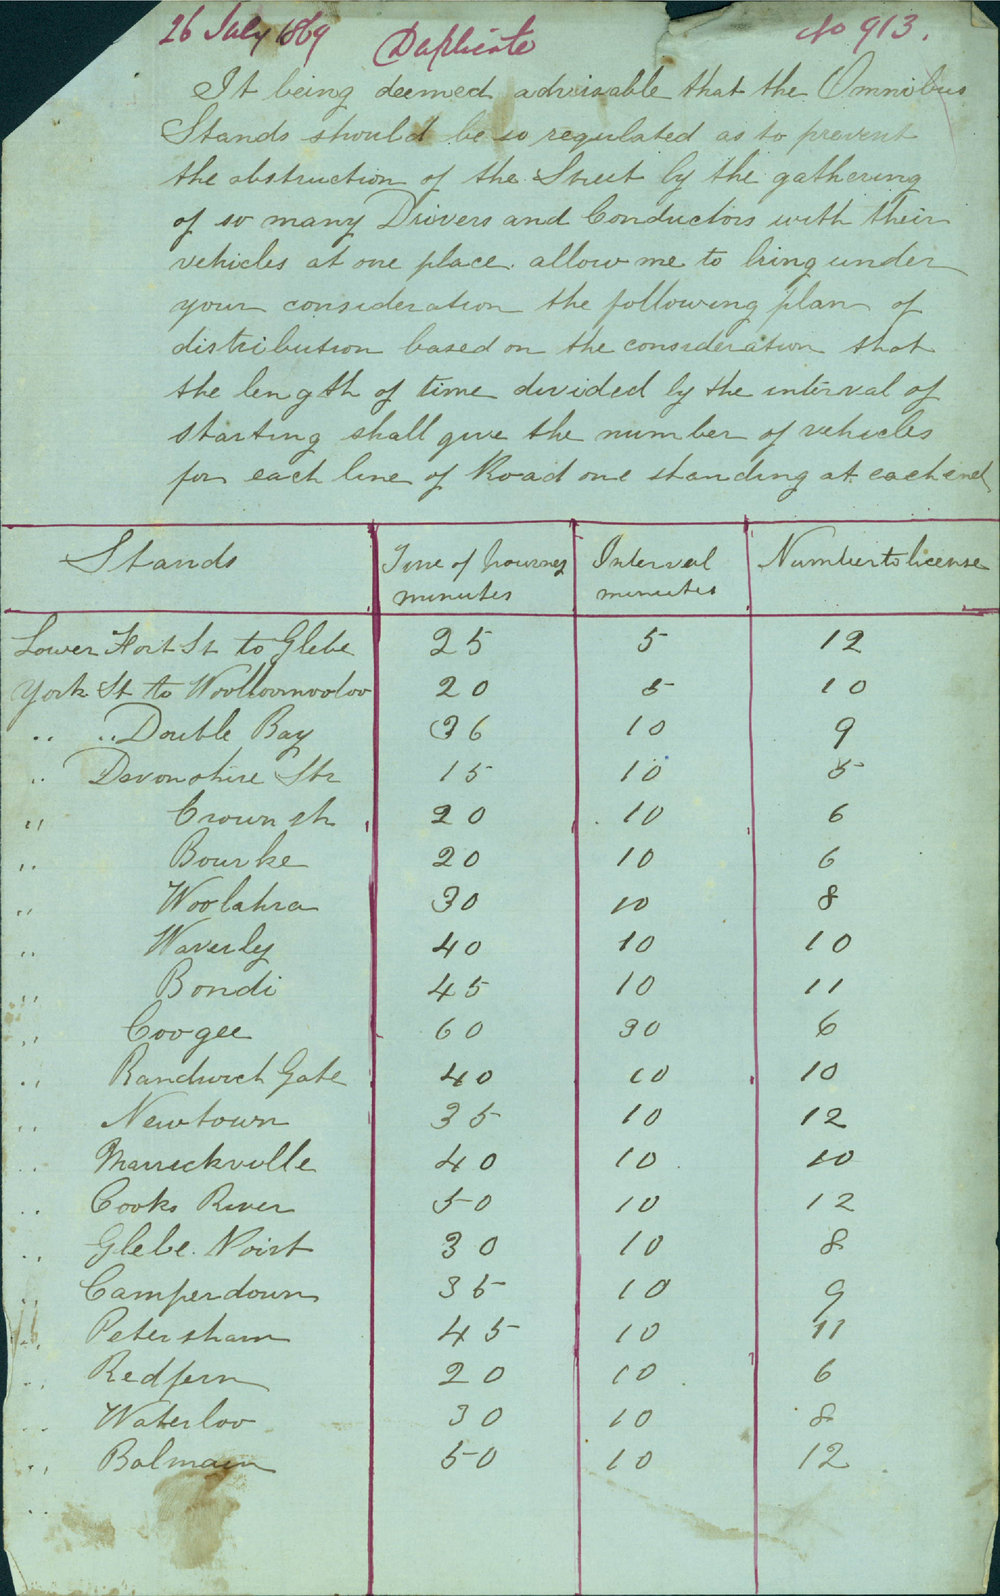 26 July 1869 Duplicate No 913.
It being deemed advisable that the Omnibus
Stands should be so regulated as to prevent
the obstruction of the Street by the gathering
of so many Drivers and Conductors with their
vehicles at one place. allow me to bring under
your consideration the following plan of
distribution based on the consideration that
the length of time divided by the interval of
starting shall give the number of vehicles
for each line of Road one standing at each end
Stands Time of Journey Interval Number to license
minutes minutes
Lower Fort St to Glebe 25 5 12
York St to Woolloomooloo 20 5 10
.. .. Double Bay 36 10 9
.. Devonshire Str 15 10 5
" Crown str 20 10 6
.. Bourke 20 10 6
" Woolahra 30 10 8
.. Waverly 40 10 10
" Bondi 45 10 11
.. Coogee 60 30 6
.. Randwick Gate 40 10 10
.. Newtown 35 10 12
.. Marrickville 40 10 10
.. Cooks River 50 10 12
.. Glebe Point 30 10 8
.. Camperdown 35 10 9
.. Petersham 45 10 11
.. Redfern 20 10 6
.. Waterloo 30 10 8
.. Balmain 50 10 12
..